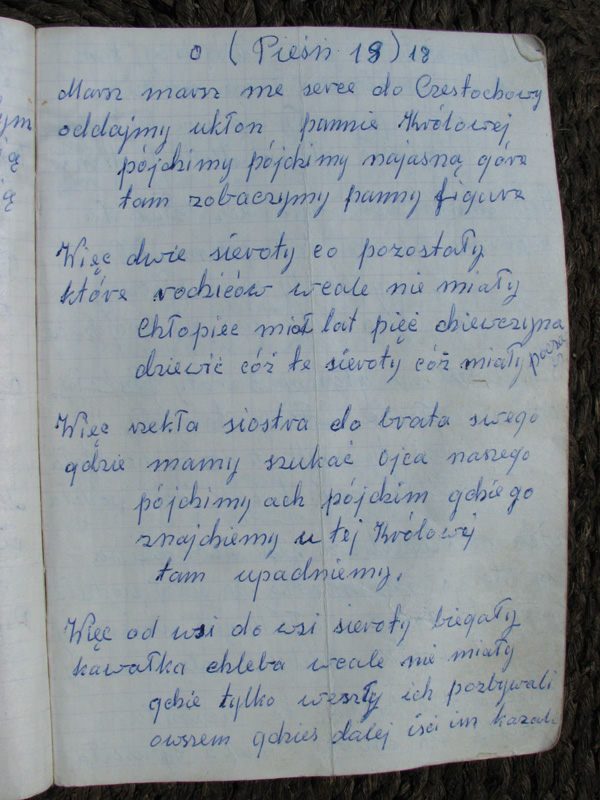 ym
ią
ią
0 (Pieśń 18) 18
Marsz marsz me serce do Czestochowy
oddajmy ukłon pannie Królowej
pójdzimy pójdzimy najasną góre
tam zobaczymy panny figure
Więc dwie sieroty co pozostały
które rodziców wcale nie miały
Chłopiec miał lat pięć dziewczyna
dziewić cóż te sieroty cóż miały
Więc rzekła siostra do brata swego
gdzie mamy szukać Ojca naszego
pójdzimy ach pójdzim gdzie go
znajdziemy u tej Królowej
tam upadniemy.
Więc od wsi do wsi sieroty biegały
kawałka chleba wcale nie miały
gdzie tylko weszły ich pozbywali
owszem gdzies dalej iści im kazali